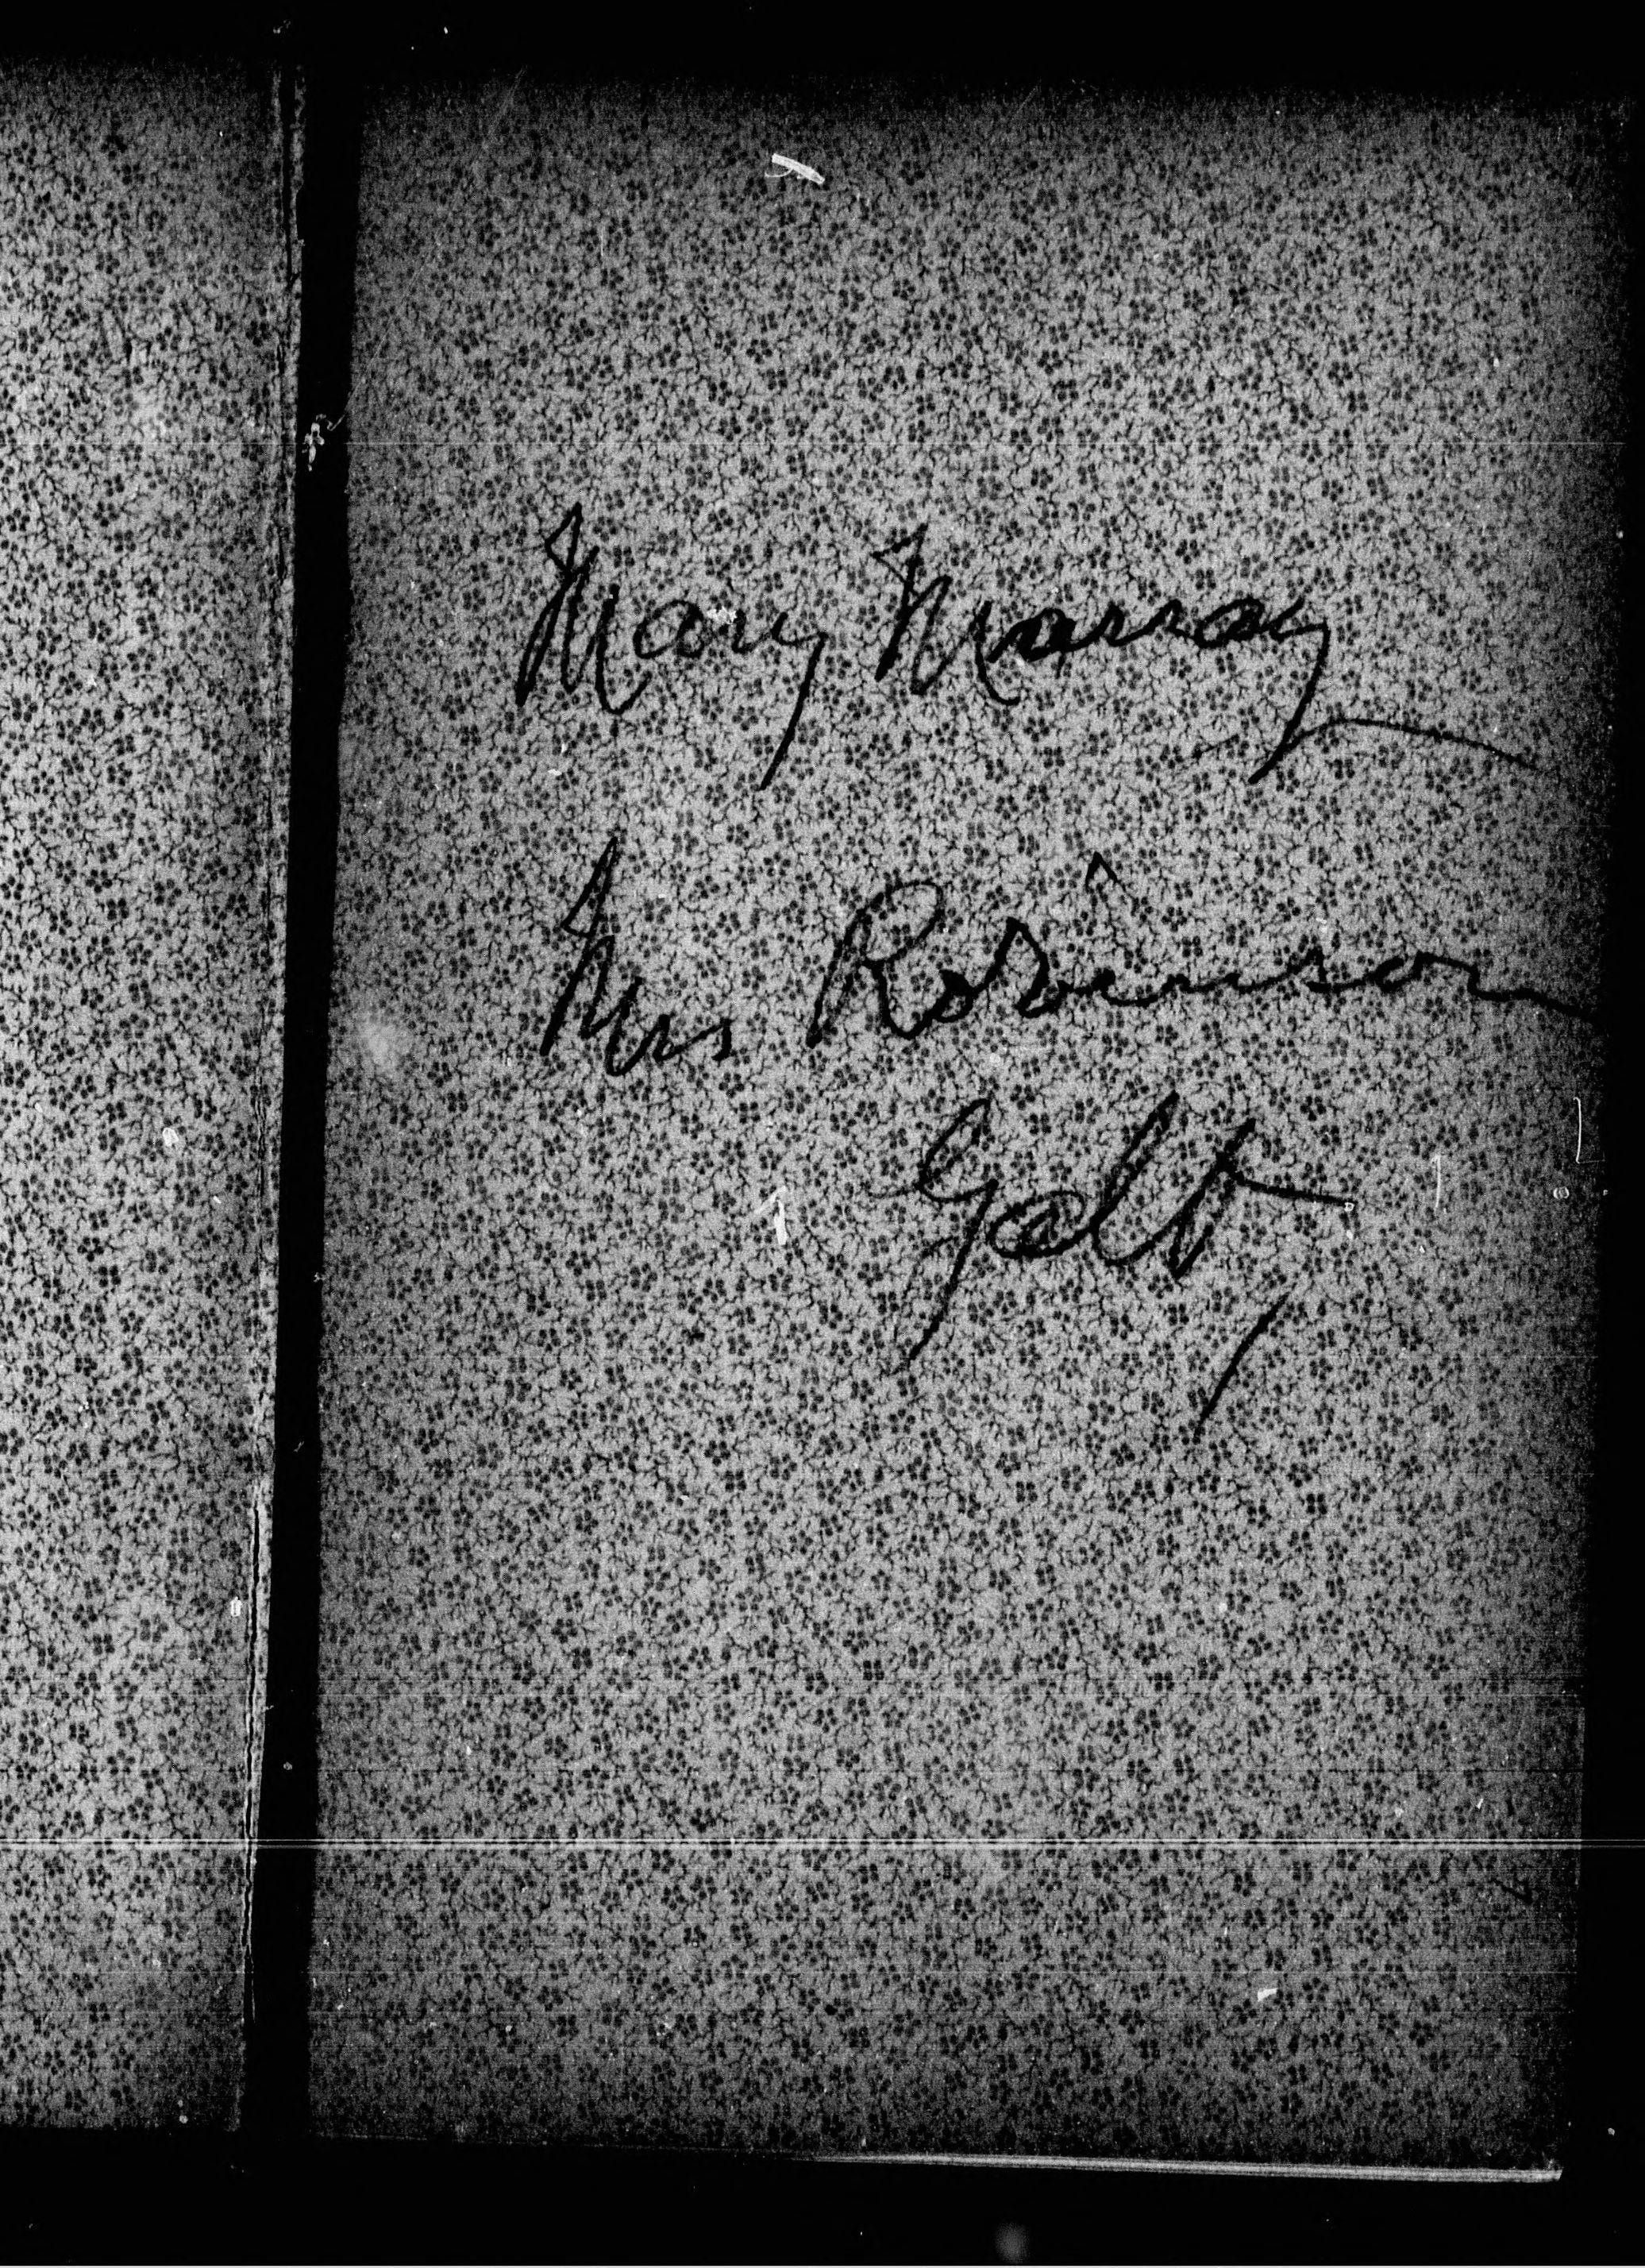 Mary Murray
Mrs Robinson
Galt